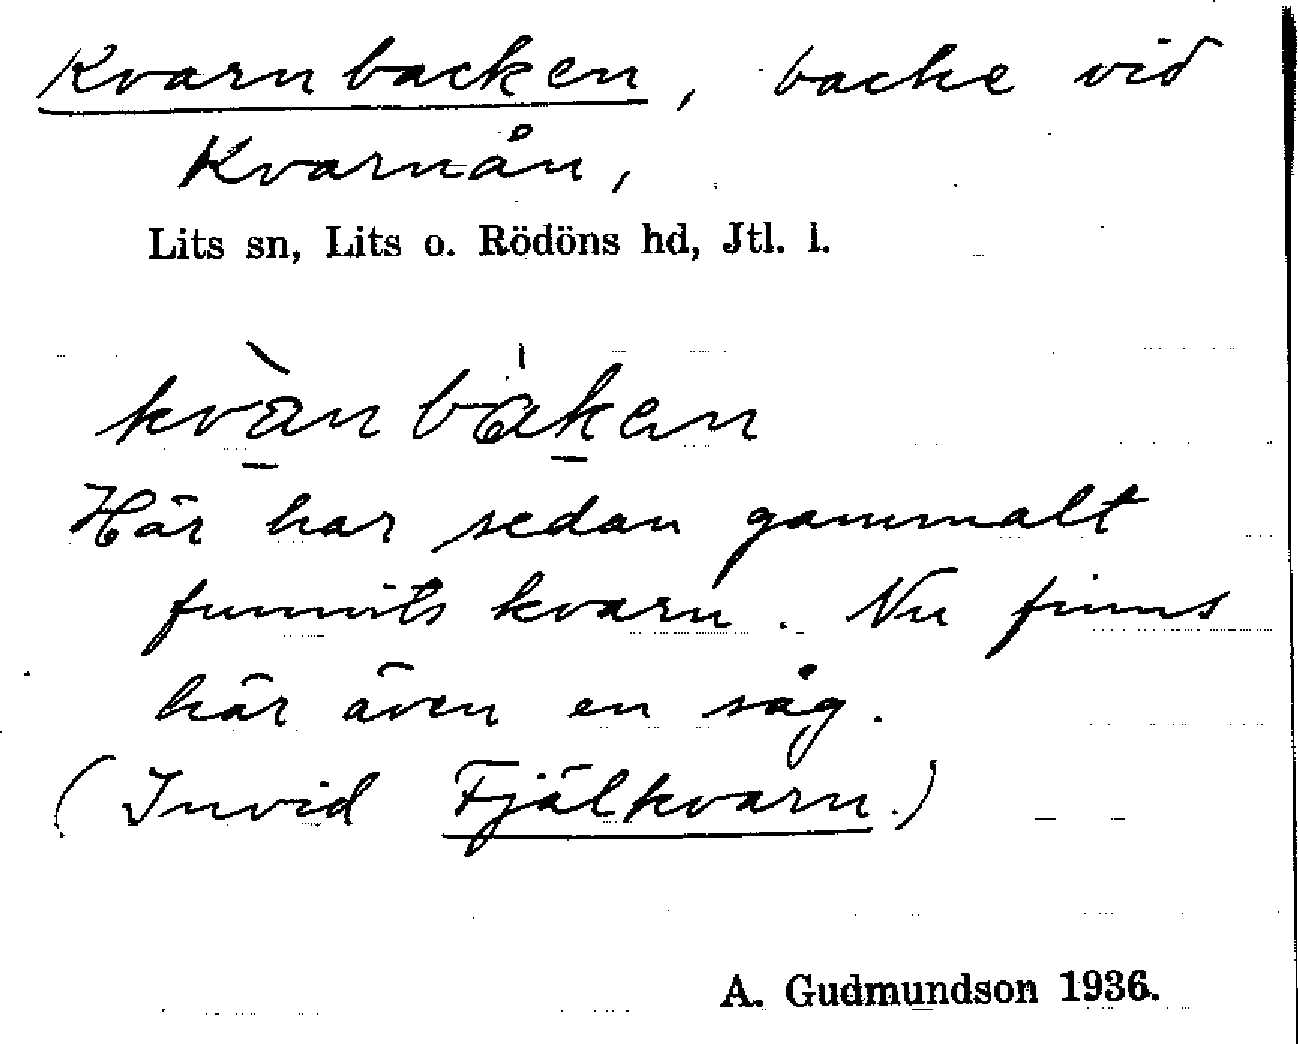 Kvarnbacken, backe vid
Kvarnån,
Lits sn, Lits o. Rödöns hd, Jtl. l.
kvànbàken
Här har sedan gammalt
funnits kvarn. Nu finns
här även en såg.
(Invid Fjälkvarn.)
A. Gudmundson 1936.